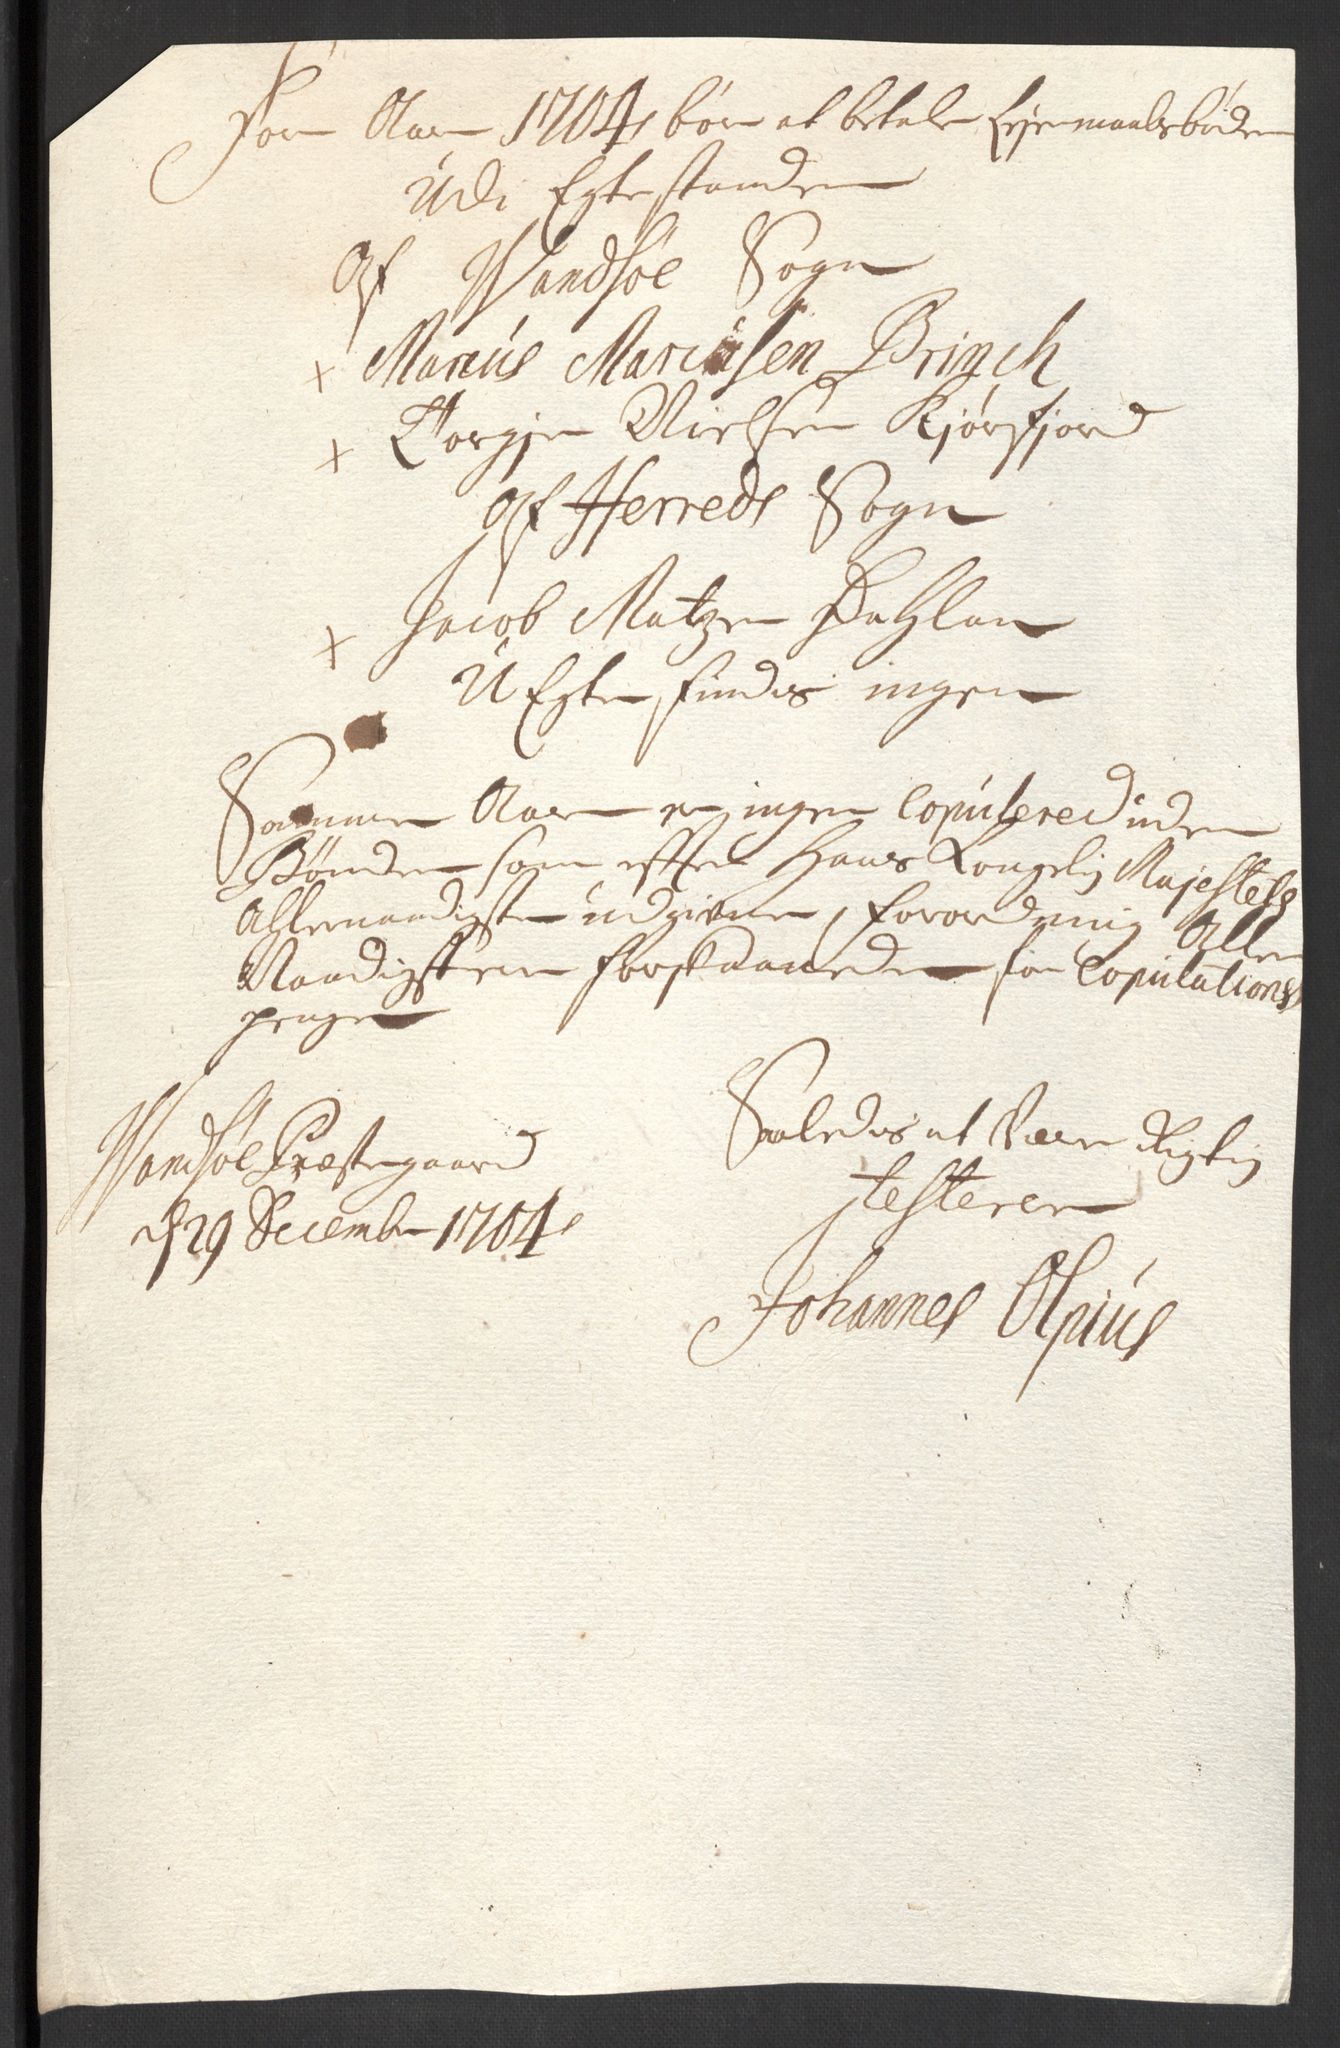 For Aar 1704 bør at betale Lejermaalsbøder
Udi Egtestanden
Af Vandsøe Sogn
+ Marcus Marcusen Brinch
+ Torgje Nielsen Kjørsfjord
Af Herreds Sogn
+ Jacob Matzen Dahlan
U Egte findis ingen
Samme Aar er ingen Copulered uden
Bønder som efter Hans Kongelig Majestets
Allernaadigste udgivne forordning Aller
Naadigsten forskaanede for Copulations
penge
Vandsøe Præstegaard
d 29 December 1704
Saaledis at Være Rigtig
testerer
Johannes Alpius